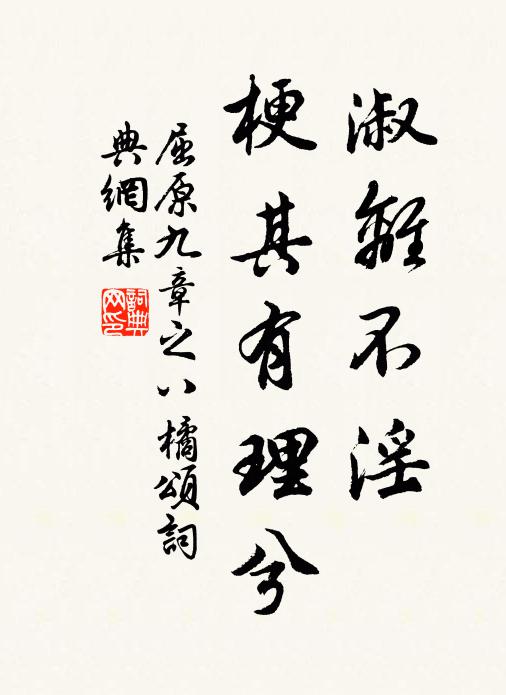 淑離不淫
梗其有理兮
屈原九章之八橘頌詞
典網集
詞典
网印